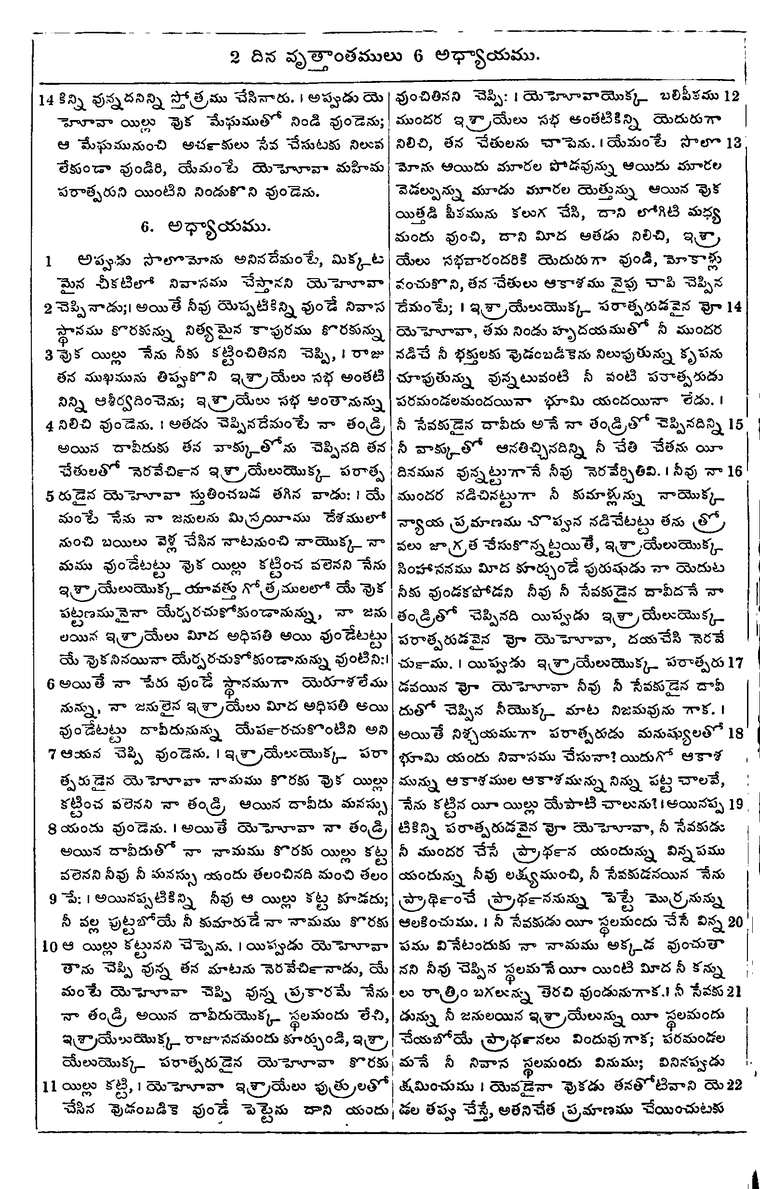 2 దిన వృత్తాంతములు 6 అధ్యాయము.
14 కిన్ని వున్నదనిన్ని స్తోత్రము చేసినారు. । అప్పుడు యె
హెూవా యిల్లు వుక మేఘముతో నిండి వుండెను;
ఆ మేఘమునుంచి అర్చకులు సేవ చేసుటకు నిలువ
లేకుండా వుండిరి, యేమంటే యెహెూవా మహిమ
పరాత్పరుని యింటిని నిండుకొని వుండెను.
6. అధ్యాయము.
1 అప్పుడు సొలొమోను అనినదేమంటే, మిక్కుట
మైన చీకటిలో నివాసము చేస్తానని యెహెూవా
2 చెప్పినాడు;। అయితే నీవు యెప్పటికిన్ని వుండే నివాస
స్థానము కొరకున్ను నిత్యమైన కాపురము కొరకున్ను
3 వుక యిల్లు నేను నీకు కట్టించితినని చెప్పి, । రాజు
తన ముఖమును తిప్పుకొని ఇశ్రాయేలు సభ అంతటి
నిన్ని ఆశీర్వదించెను; ఇశ్రాయేలు సభ అంతానున్ను
4 నిలిచి వుండెను. । అతడు చెప్పినదేమంటే నా తండ్రి
అయిన దావీదుకు తన వాక్కుతోను చెప్పినది తన
చేతులతో నెరవేర్చిన ఇశ్రాయేలుయొక్క పరాత్ప
5 రుడైన యెహెూవా స్తుతించబడ తగిన వాడు: । యే
మంటే నేను నా జనులను మిస్రయీము దేశములో
నుంచి బయిలు వెళ్ల చేసిన నాటనుంచి నాయొక్క నా
మము వుండేటట్టు వుక యిల్లు కట్టించ వలెనని నేను
ఇశ్రాయేలుయొక్క యావత్తు గోత్రములలో యే వుక
పట్టణమునైనా యేర్పరచుకోకుండానున్ను, నా జను
లయిన ఇశ్రాయేలు మీద అధిపతి అయి వుండేటట్టు
యే వుకనినయినా యేర్పరచుకోకుండానున్ను వుంటిని:।
6 అయితే నా పేరు వుండే స్థానముగా యెరూశలేము
నున్ను, నా జనులైన ఇశ్రాయేలు మీద అధిపతి అయి
వుండేటట్టు దావీదునున్ను యేర్పరచుకొంటిని అని
7 ఆయన చెప్పి వుండెను. । ఇశ్రాయేలుయొక్క పరా
త్పరుడైన యెహెూవా నామము కొరకు వుక యిల్లు
కట్టించ వలెనని నా తండ్రి అయిన దావీదు మనస్సు
8 యందు వుండెను. । అయితే యెహెూవా నా తండ్రి
అయిన దావీదుతో నా నామము కొరకు యిల్లు కట్ట
వలెనని నీవు నీ మనస్సు యందు తలంచినది మంచి తలం
9 పే: । అయినప్పటికిన్ని నీవు ఆ యిల్లు కట్ట కూడదు;
నీ వల్ల పుట్టబోయే నీ కుమారుడే నా నామము కొరకు
10 ఆ యిల్లు కట్టునని చెప్పెను. । యిప్పుడు యెహెూవా
తాను చెప్పి వున్న తన మాటను నెరవేర్చినాడు, యే
మంటే యెహెూవా చెప్పి వున్న ప్రకారమే నేను
నా తండ్రి అయిన దావీదుయొక్క స్థలమందు లేచి,
ఇశ్రాయేలుయొక్క రాజాసనమందు కూర్చుండి, ఇశ్రా
యేలుయొక్క పరాత్పరుడైన యెహెూవా కొరకు
11 యిల్లు కట్టి, । యెహెూవా ఇశ్రాయేలు పుత్రులతో
చేసిన వుడంబడికె వుండే పెట్టెను దాని యందు
వుంచితినని చెప్పి: । యెహెూవాయొక్క బలిపీఠము 12
ముందర ఇశ్రాయేలు సభ అంతటికిన్ని యెదురుగా
నిలిచి, తన చేతులను చాపెను. । యేమంటే సొలొ 13
మోను ఆయిదు మూరల పొడవున్ను ఆయిదు మూరల
వెడల్పున్ను మూడు మూరల యెత్తున్ను ఆయిన వుక
యిత్తడి పీఠమును కలుగ చేసి, దాని లోగిటి మధ్య
మందు వుంచి, దాని మీద అతడు నిలిచి, ఇశ్రా
యేలు సభవారందరికి యెదురుగా వుండి, మోకాళ్లు
వంచుకొని, తన చేతులు ఆకాశము వైపు చాపి చెప్పిన
దేమంటే; । ఇశ్రాయేలుయొక్క పరాత్పరుడవైన వో 14
యెహెూవా, తమ నిండు హృదయముతో నీ ముందర
నడిచే నీ భక్తులకు వుడంబడికెను నిలుపుతున్ను కృపను
చూపుతున్ను వున్నటువంటి నీ వంటి పరాత్పరుడు
పరమండలమందయినా భూమి యందయినా లేడు. ।
నీ సేవకుడైన దావీదు అనే నా తండ్రితో చెప్పినదిన్ని 15
నీ వాక్కుతో ఆనతిచ్చినదిన్ని నీ చేతి చేతను యీ
దినమున వున్నట్టుగానే నీవు నెరవేర్చితివి. । నీవు నా 16
ముందర నడిచినట్టుగా నీ కుమాళ్లున్ను నాయొక్క
న్యాయ ప్రమాణము చొప్పున నడిచేటట్టు తమ త్రో
వలు జాగ్రత చేసుకొన్నట్టయితే, ఇశ్రాయేలుయొక్క
సింహాసనము మీద కూర్చుండే పురుషుడు నా యెదుట
నీకు వుండకపోడని నీవు నీ సేవకుడైన దావీదనే నా
తండ్రితో చెప్పినది యిప్పుడు ఇశ్రాయేలుయొక్క
పరాత్పరుడవైన వో యెహెూవా, దయచేసి నెరవే
ర్చుము. । యిప్పుడు ఇశ్రాయేలుయొక్క పరాత్పరు 17
డవయిన వో యెహెూవా నీవు నీ సేవకుడైన దావీ
దుతో చెప్పిన నీయొక్క మాట నిజమవును గాక. ।
అయితే నిశ్చయముగా పరాత్పరుడు మనుష్యులతో 18
భూమి యందు నివాసము చేసునా? యిదుగో ఆకాశ
మున్ను ఆకాశముల ఆకాశమున్ను నిన్ను పట్ట చాలవే,
నేను కట్టిన యీ యిల్లు యేపాటి చాలును?। అయినప్ప 19
టికిన్ని పరాత్పరుడవైన వో యెహెూవా, నీ సేవకుడు
నీ ముందర చేసే ప్రార్థన యందున్ను విన్నపము
యందున్ను నీవు లక్ష్యముంచి, నీ సేవకుడనయిన నేను
ప్రార్థించే ప్రార్థననున్ను పెట్టే మొర్రనున్ను
ఆలకించుము. । నీ సేవకుడు యీ స్థలమందు చేసే విన్న 20
పము వినేటందుకు నా నామము అక్కడ వుంచుతా
నని నీవు చెప్పిన స్థలమనే యీ యింటి మీద నీ కన్ను
లు రాత్రిం బగలున్ను తెరచి వుండునుగాక.। నీ సేవకు 21
డున్ను నీ జనులయిన ఇశ్రాయేలున్ను యీ స్థలమందు
చేయబోయే ప్రార్థనలు విందువుగాక; పరమండల
మనే నీ నివాస స్థలమందు వినుము; వినినప్పుడు
క్షమించుము । యెవడైనా వుకడు తనతోటివాని యె 22
డల తప్పు చేస్తే, అతనిచేత ప్రమాణము చేయించుటకు